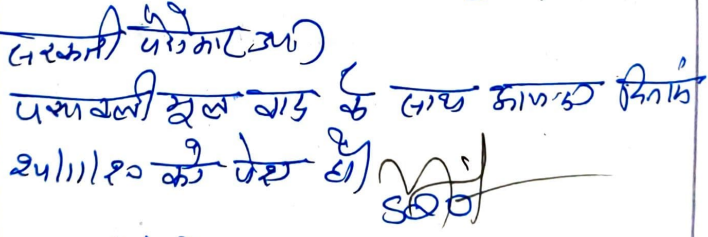 सरकारी पैरोकार (उप)
पत्रावली मूल वाद के साथ आगामी दिनांक
24/11/20 को पेश हो।
SDO